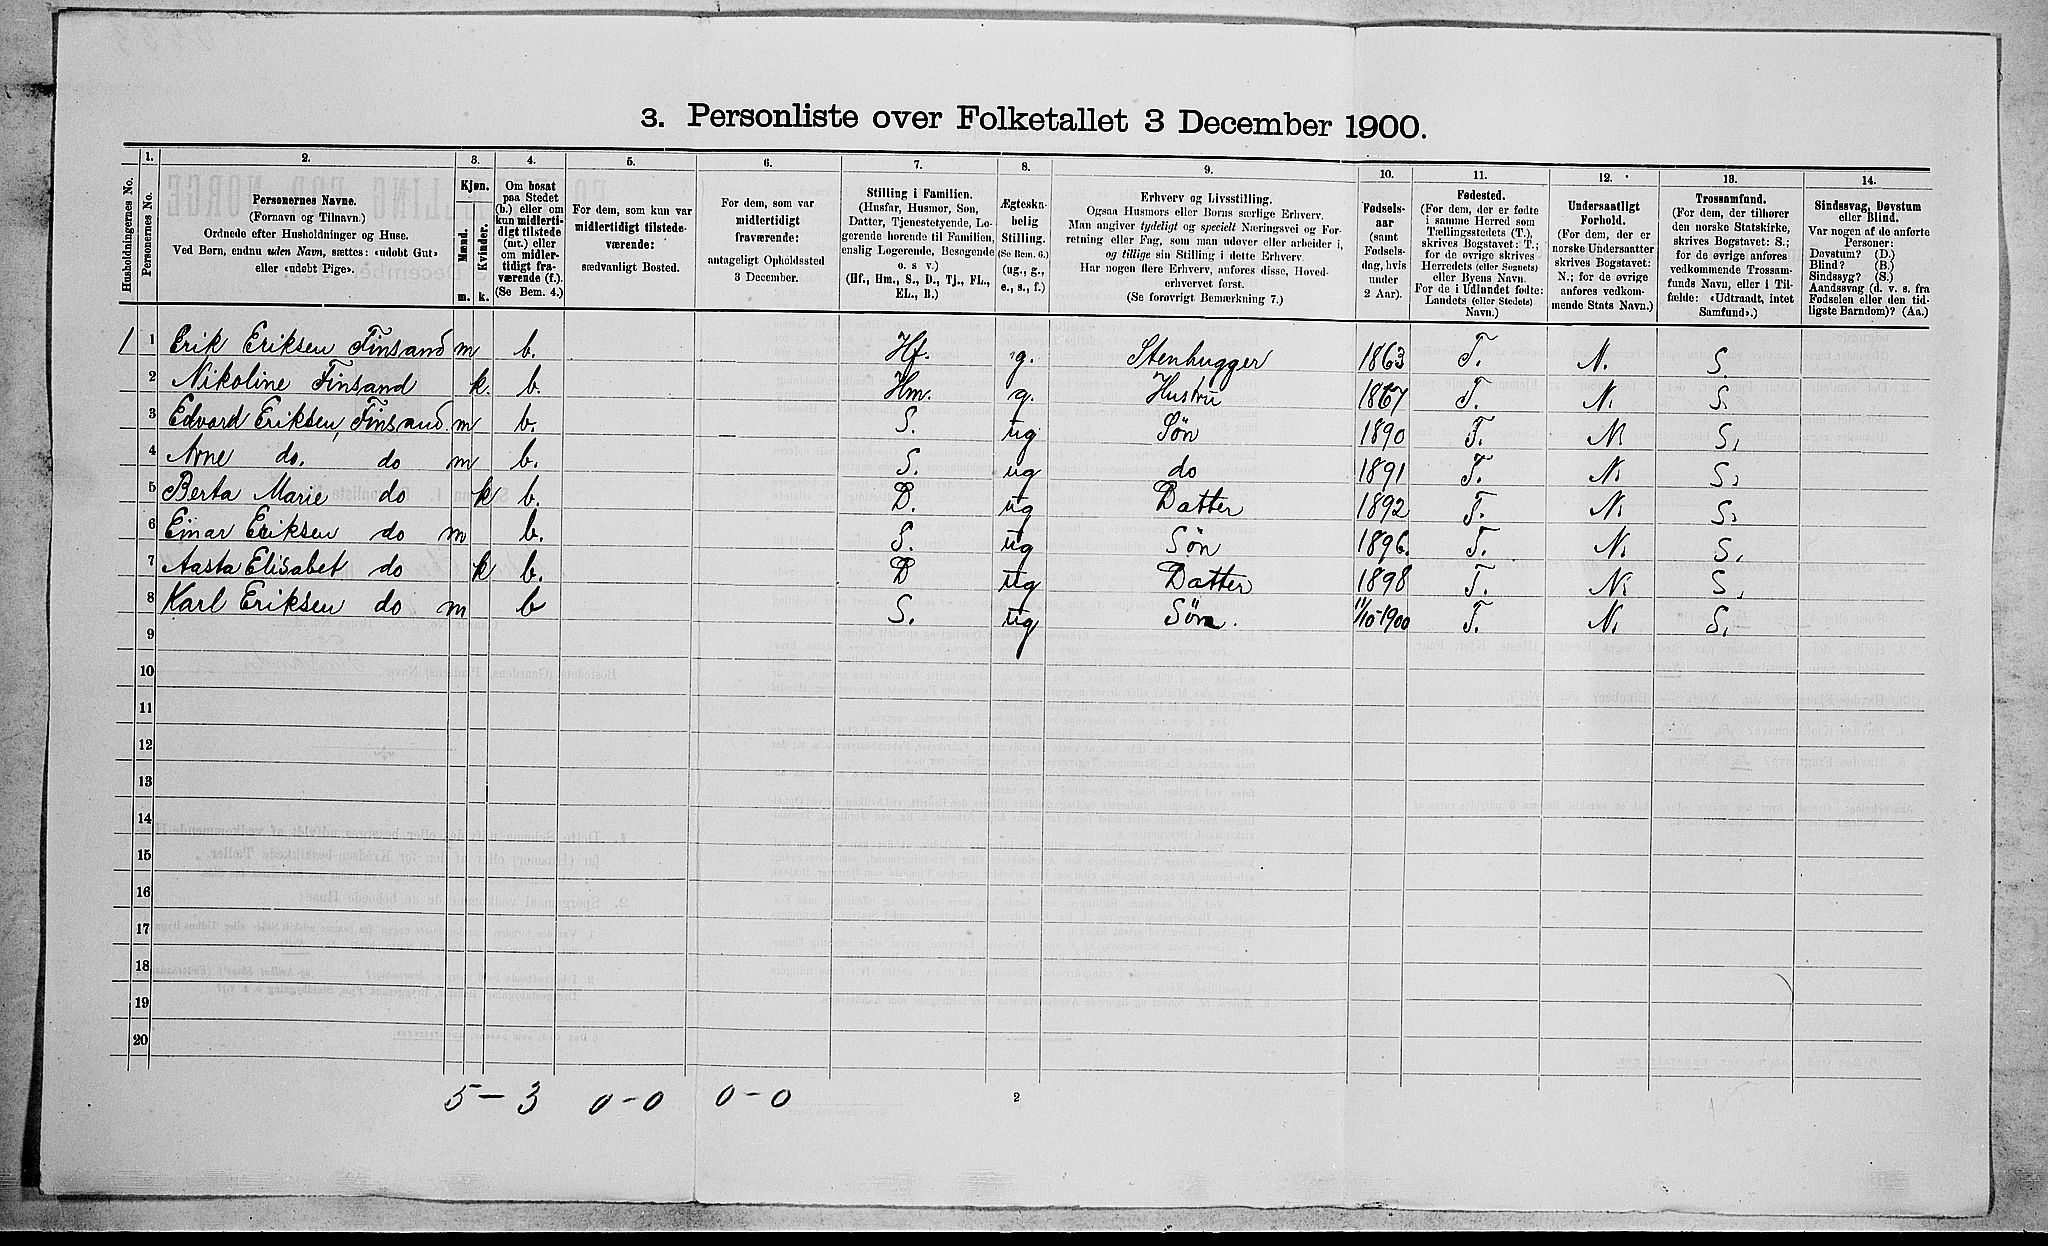 3. Personliste over Folketallet 3 December 1900.
1. 2. 3. 4. 5. 6. 7. 8. 9. 10. 11. 12. 13. 14.
Husholdningernes No.
Personernes No.
Personernes Navne.
(Fornavn og Tilnavn.)
Ordnede efter Husholdninger og Huse.
Ved Børn, endnu uden Navn, sættes: «udøbt Gut»
eller «udøbt Pige».
Kjøn.
Mænd.
Kvinder.
m. k.
Om bosat
paa Stedet
(b.) eller om
kun midlerti-
digt tilstede
(mt.) eller
om midler-
tidigt fra-
værende (f.).
(Se Bem. 4.)
For dem, som kun var
midlertidigt tilstede-
værende:
sædvanligt Bosted.
For dem, som var
midlertidigt
fraværende:
antageligt Opholdssted
3 December.
Stilling i Familien.
(Husfar, Husmor, Søn,
Datter, Tjenestetyende, Lo-
gerende hørende til Familien,
enslig Logerende, Besøgende
o. s. v.)
(Hf., Hm., S., D., Tj., FL.,
EL., B.)
Ægteska-
belig
Stilling.
(Se Bem. 6.)
(ug., g.,
e., s., f.)
Erhverv og Livsstilling.
Ogsaa Husmors eller Børns særlige Erhverv.
Man angiver tydeligt og specielt Næringsvei og For-
retning eller Fag, som man udøver eller arbeider i,
og tillige sin Stilling i dette Erhverv.
Har nogen flere Erhverv, anføres disse, Hoved-
erhvervet først.
(Se forøvrigt Bemærkning 7.)
Fødsels-
aar
(samt
Fødsels-
dag, hvis
under
2 Aar).
Fødested.
(For dem, der er fødte
i samme Herred som
Tællingsstedets (T.),
skrives Bogstavet: T.;
for de øvrige skrives
Herredets (eller Sognets)
eller Byens Navn.
For de i Udlandet fødte:
Landets (eller Stedets)
Navn.)
Undersaatligt
Forhold.
(For dem, der er
norske Undersaatter
skrives Bogstavet:
N.; for de øvrige
anføres vedkom-
mende Stats Navn.)
Trossamfund.
(For dem, der tilhører
den norske Statskirke,
skrives Bogstavet: S.;
for de øvrige anføres
vedkommende Trossam-
funds Navn, eller i Til-
fælde: «Udtraadt, intet
Samfund».)
Sindssvag, Døvstum
eller Blind.
Var nogen af de anførte
Personer:
Døvstum? (D.)
Blind? (B.)
Sindssyg? (S.)
Aandssvag (d. v. s. fra
Fødselen eller den tid-
ligste Barndom)? (Aa.)
1 1 Erik Eriksen Finsand m b. Hf. g. Stenhugger 1863 T. N. S.
2 Nikoline Finsand k. b. Hm. g. Hustru 1867 T. N. S.
3 Edvard Eriksen, Finsand. m b. S. ug Søn 1890 T. N S.
4 Arne do. do m b. S. ug do 1891 T. N. S.
5 Berta Marie do k b. D. ug Datter 1892 T. N. S.
6 Einar Eriksen do m b. S. ug Søn 1896. T. N. S.
7 Aasta Elisabet do k b. D ug Datter 1898 T. N. S.
8 Karl Eriksen do m b S. ug Søn. 11/10-1900 T. N. S.
9
10
11
12
13
14
15
16
17
18
19
20
5 - 3 0-0 0-0
2